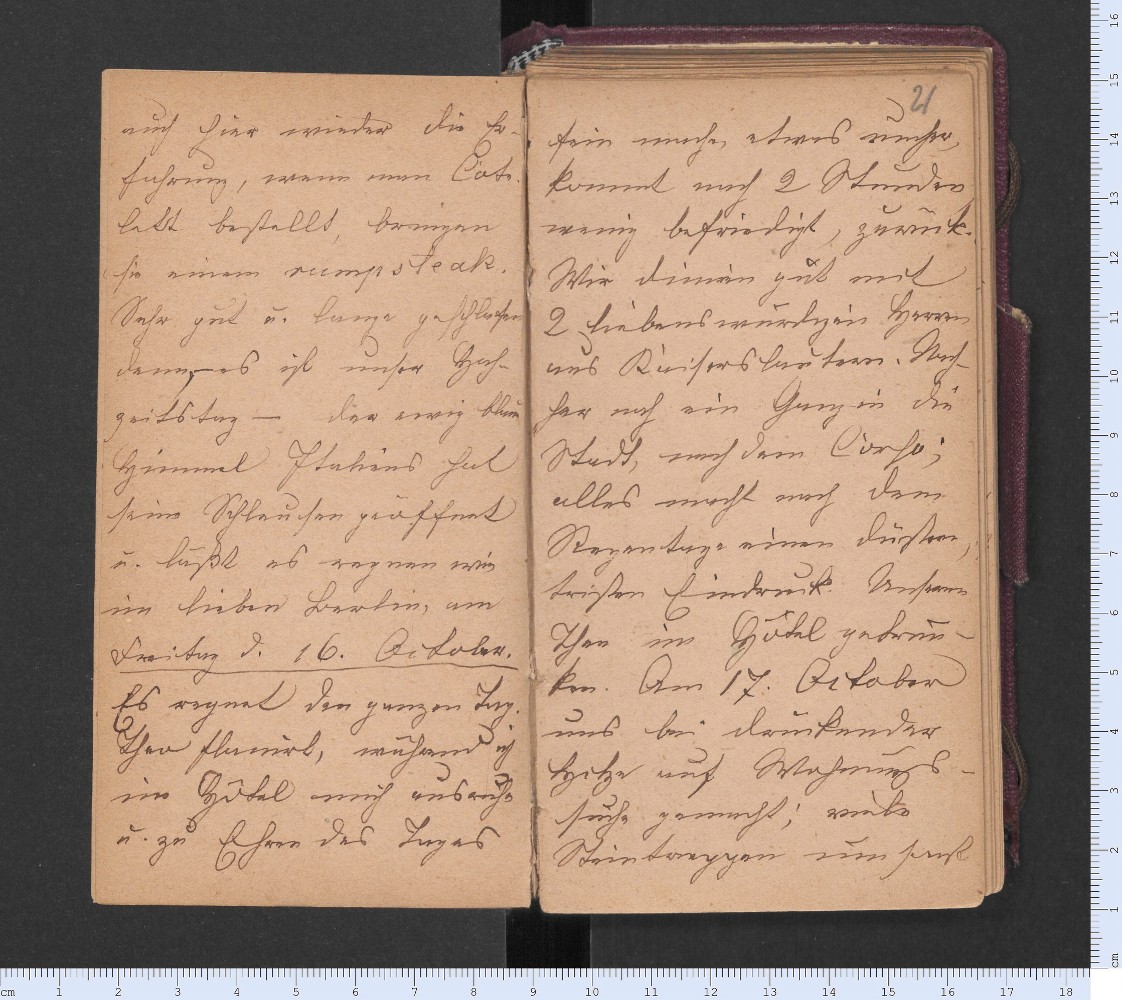 auch hier wieder die Er-
fahrung, wenn man Cote-
lett bestellt, bringen
sie einem rumpsteak.
Sehr gut u. lange geschlafen
denn, – es ist unser Hoch-
zeitstag — der ewig blaue
Himmel Italiens hat
seine Schleusen geöffnet
u. läßt es regnen wie
im lieben Berlin, am
Freitag d. 16. October.
Es regnet den ganzen Tag.
Theo flanirt, während ich
im Hôtel mich ausruhe
u. zu Ehren des Tages
21
fein mache, etwas umher,
kommt nach 2 Stunden
wenig befriedigt, zurück.
Wir diniren gut mit
2 liebenswürdigen Herren
aus Kaiserslautern. Nach-
her noch ein Gang in die
Stadt, nach dem Corso;
alles macht nach dem
Regentage einen düstren,
tristen Eindruck. Unseren
Thee im Hôtel getrun-
ken. Am 17. October
uns bei drückender
Hitze auf Wohnungs-
suche gemacht; viele
Steintreppen umsonst